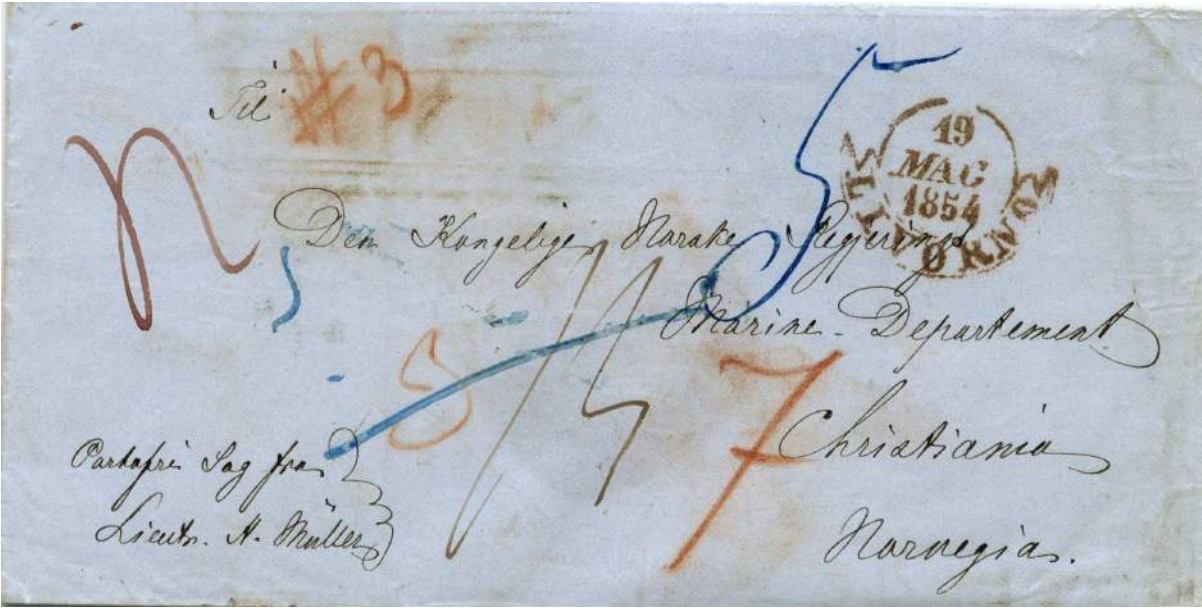 Til
# 3
19
MAG
1854
LIVORNO
5
Den Kongelige Norske Regjerings
Marine-Departement
7
Christiania
Portofri Sag fra
Lieutn. N. Müller
Norvegia.